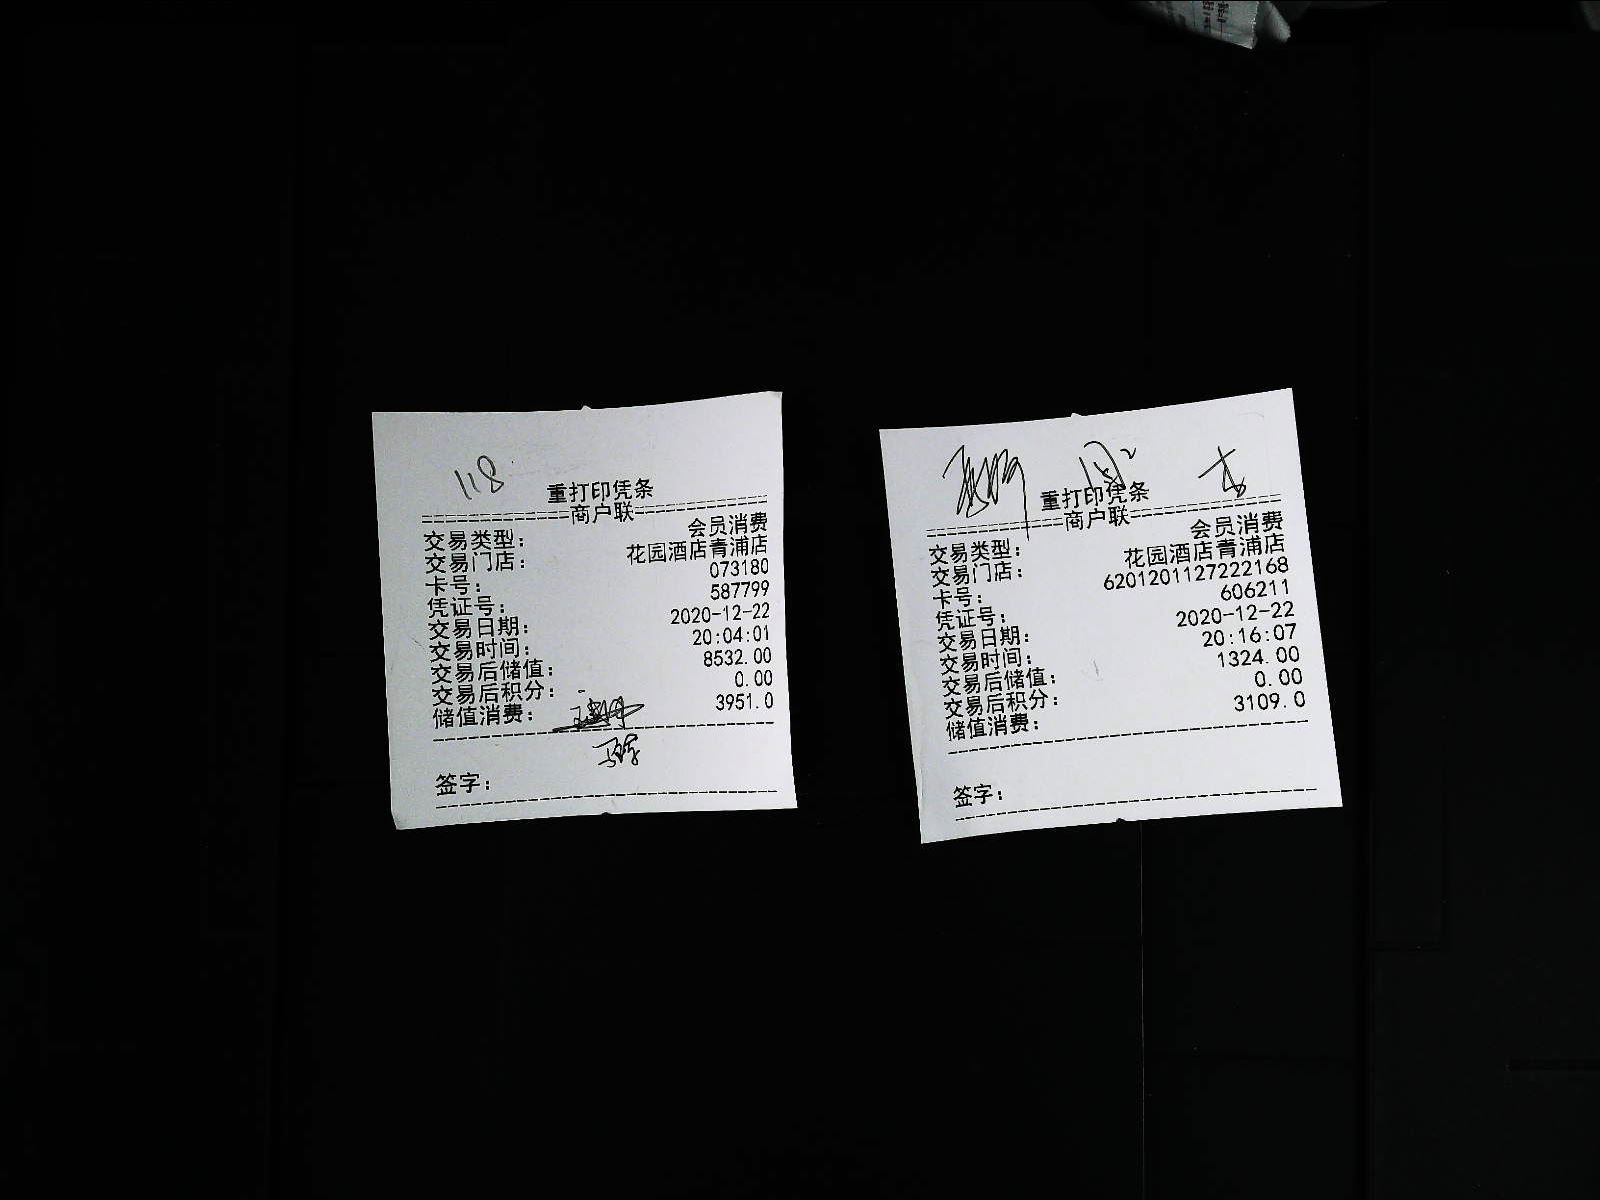 118
重打印凭条
============商户联============
交易类型： 会员消费
交易门店： 花园酒店青浦店
卡号： 073180
凭证号： 587799
交易日期： 2020-12-22
交易时间： 20:04:01
交易后储值： 8532.00
交易后积分： 0.00
储值消费： 3951.0
签字：
重打印凭条
============商户联============
交易类型： 会员消费
交易门店： 花园酒店青浦店
卡号： 6201201127222168
凭证号： 606211
交易日期： 2020-12-22
交易时间： 20:16:07
交易后储值： 1324.00
交易后积分： 0.00
储值消费： 3109.0
签字：